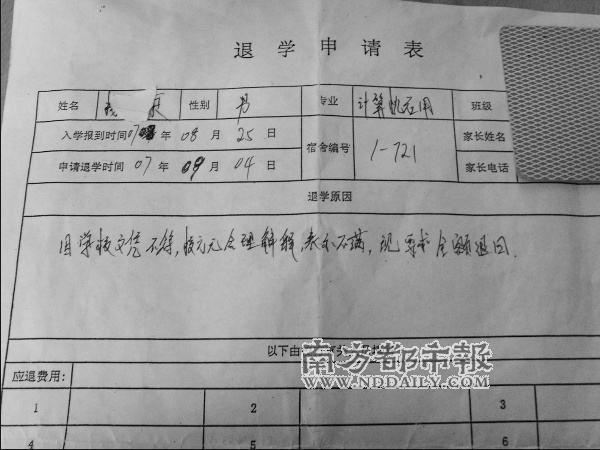 退学申请表
姓名 性别 男 专业 计算机应用 班级
入学报到时间 07 年 08 月 25 日 宿舍编号 1-721 家长姓名
申请退学时间 07 年 09 月 04 日 家长电话
退学原因
因学校文凭不符,校方无合理解释,表示不满,现要求全额退回.
以下由
南方都市报
WWW.NDDAILY.COM
应退费用:
1 2 3
4 5 6